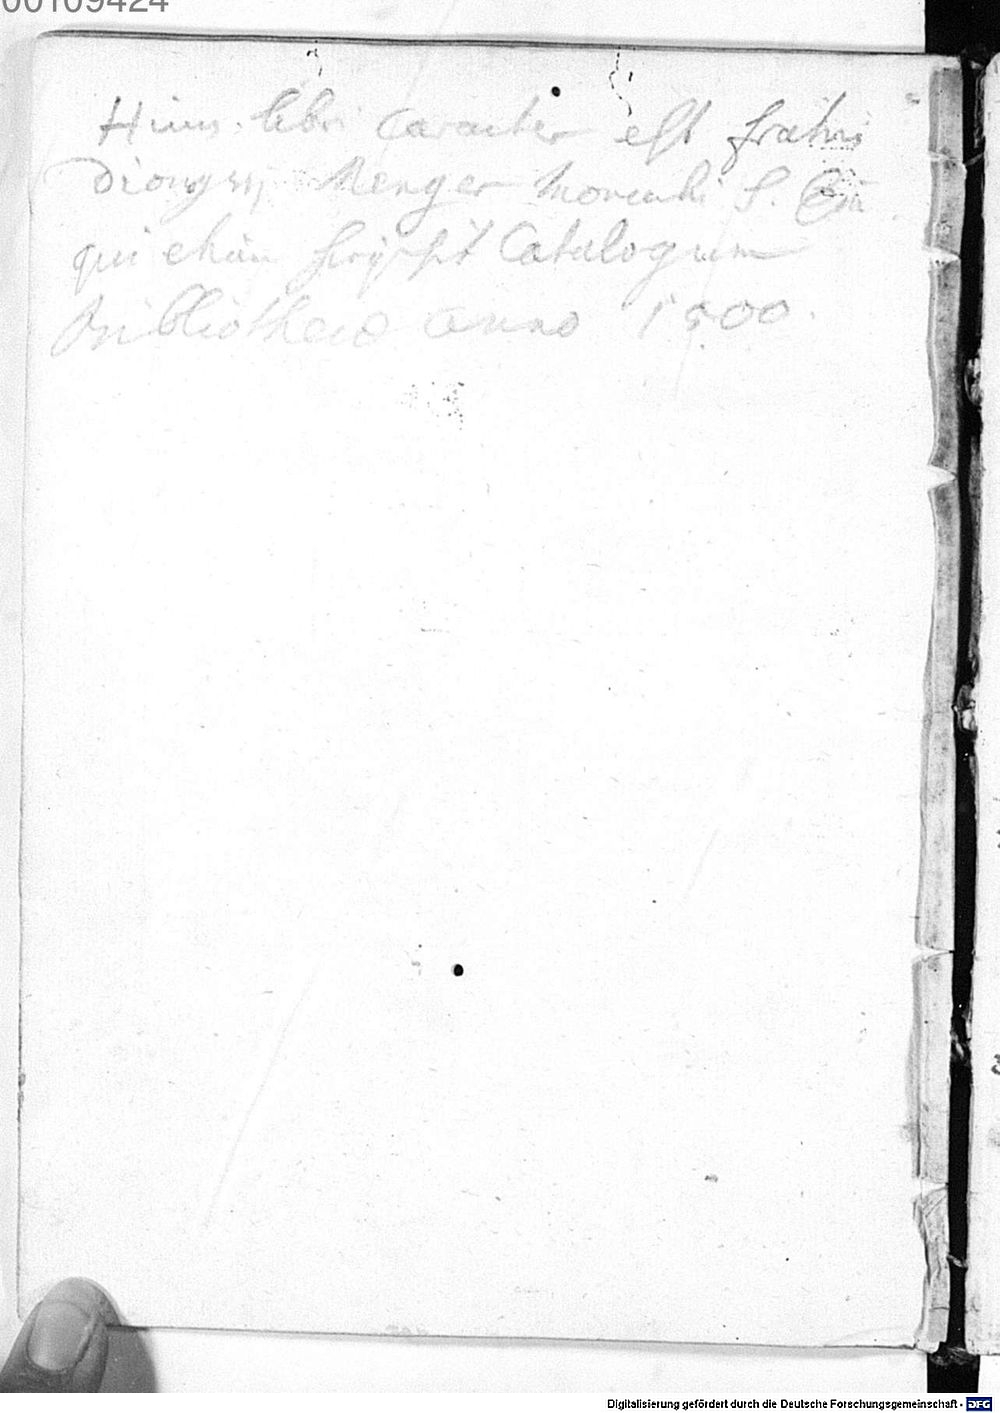 00109424
Huius libri caracter est fratris
Dionysij Menger Monachi S.
qui etiam scripsit Catalogum
bibliothecae anno 1500.
Digitalisierung gefördert durch die Deutsche Forschungsgemeinschaft - DFG